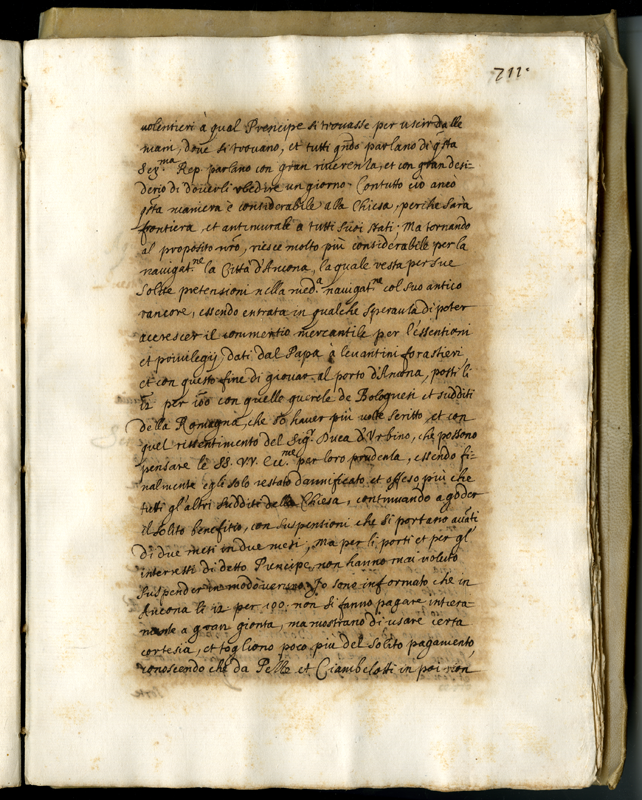 211.
uolentieri à qual Prencipe si trouasse per uscir dalle
mani, doue si trouano, et tutti qñdo parlano di q̃sta
Ser.ma Rep. parlano con gran riuerenza, et con gran desi-
derio di douerli obedire un giorno. Contutto ciò anco
q̃sta maniera è considerabile alla Chiesa, perche sarà
frontiera, et antimurale à tutti suoi stati; Ma tornando
al proposito nr̃o, riesce molto più considerabile per la
nauigat.ne la Città d'Ancona, la quale resta per sue
solite pretensioni nella med.a nauigat.ne col suo antico
rancore, essendo entrata in qualche speranza di poter
accrescer il commertio mercantile per l'essentioni
et priuilegij dati dal Papa à leuantini forastieri,
et con questo fine di giouar al porto d'Ancona, posti li
12 per 100 con quelle querele de Bolognesi et sudditi
della Romagna, che sò hauer più uolte scritto, et con
quel rissentimento del Sig.r Duca d'Vrbino, che possono
pensare le SS. VV. Ecc.me per loro prudenza, essendo fi-
nalmente egli solo restato dannificato et offeso più che
tutti gl'altri sudditi della Chiesa, continuando a goder
il solito benefitio, con suspensioni che si portano auãti
di due mesi in due mesi, Ma per li porti et per gl'
interessi di detto Prencipe, non hanno mai uoluto
suspender in modo ueruno. Io sono informato che in
Ancona li 12 per 100. non si fanno pagare intiera-
mente a gran gionta, ma mostrano di usare certa
cortesia, et togliono poco più del solito pagamento,
conoscendo che da Pelle et Ciambelotti in poi non